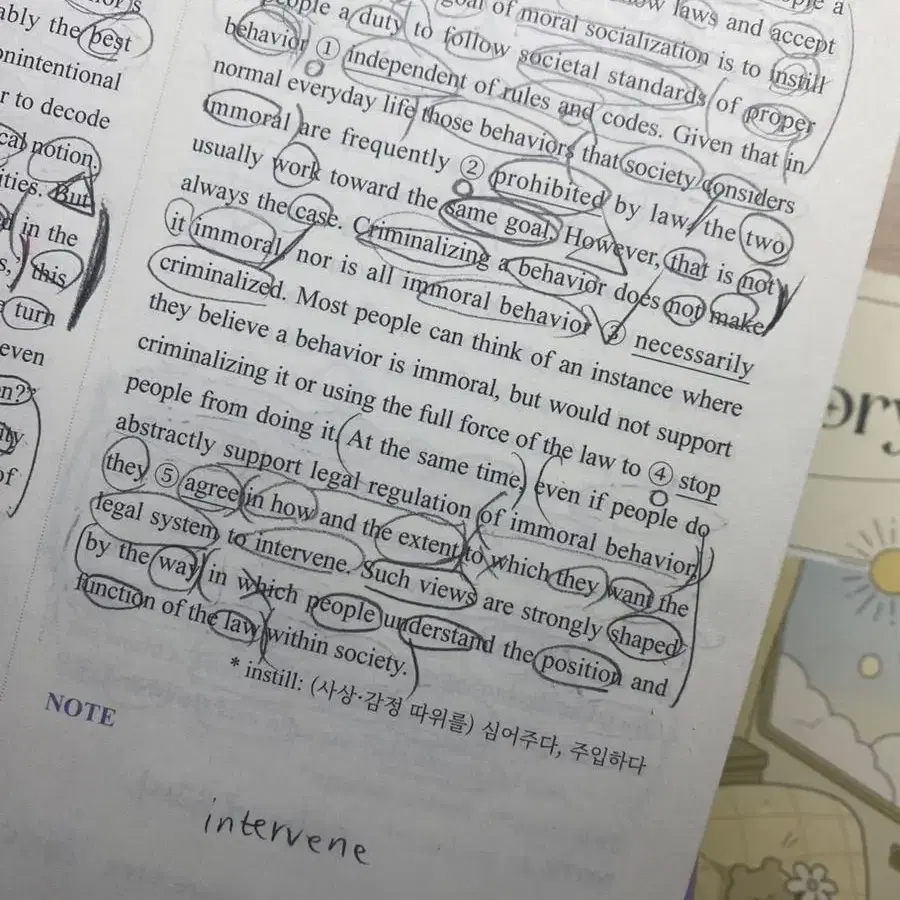 ably the best
nonintentional
r to decode
cal notion.
ities. But
in the
s, this
a turn
even
n?
of
people a
low laws and accept
people a duty to follow goal of moral socialization is to instill
behavior ① independent of rules and codes. Given that in
societal standards of proper
normal everyday life those behaviors that society considers
immoral are frequently ② prohibited by law, the two
usually work toward the same goal. However, that is not
always the case. Criminalizing a behavior does not make
it immoral, nor is all immoral behavior ③ necessarily
criminalized. Most people can think of an instance where
they believe a behavior is immoral, but would not support
criminalizing it or using the full force of the law to ④ stop
people from doing it. At the same time, even if people do
abstractly support legal regulation of immoral behavior,
they ⑤ agree in how and the extent to which they want the
legal system to intervene. Such views are strongly shaped
by the way in which people understand the position and
function of the law within society.
* instill: (사상·감정 따위를) 심어주다, 주입하다
NOTE
intervene
ory